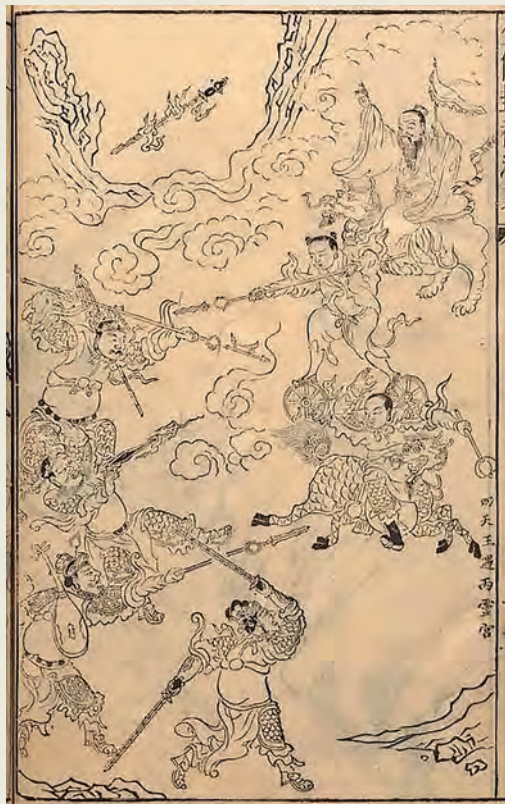 四天王遇丙靈宮